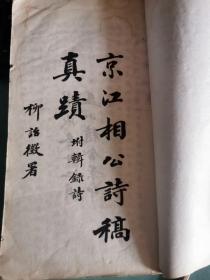 京江相公詩稿
真蹟 坿輯錄詩
柳詒徵署